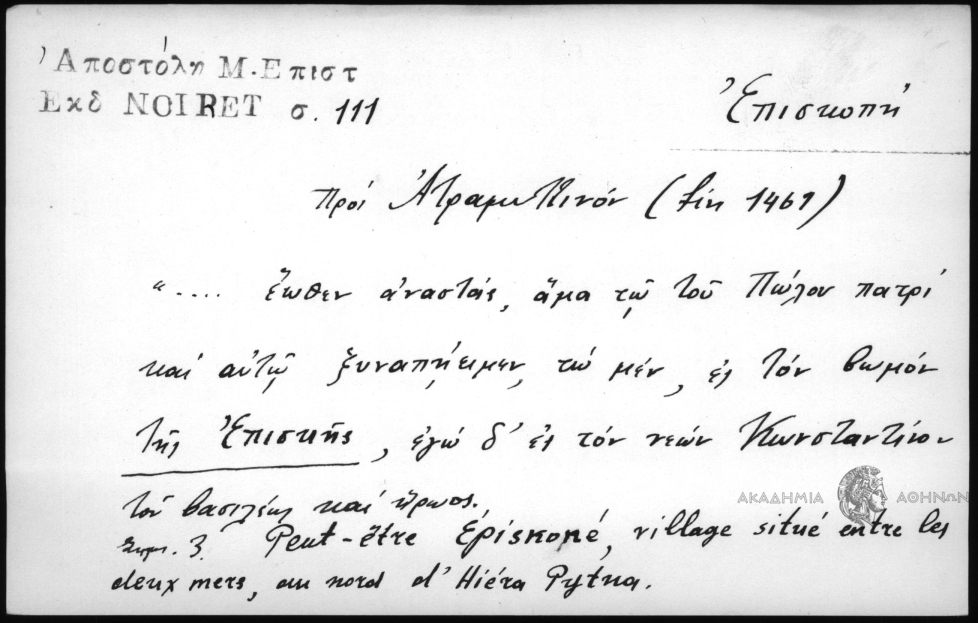 Ἀποστόλη Μ. Επιστ
Εκδ NOIRET σ. 111
Ἐπισκοπή
Πρός Ἀτραμυττινόν (fin 1461)
“.... ἕωθεν ἀναστάς, ἅμα τῷ τοῦ Πώλου πατρί
καί αὐτῷ ξυναπῄειμεν, τώ μέν, ἐς τόν βωμόν
τῆς Ἐπισκῆς, ἐγώ δ' ἐς τόν νεών Κωνσταντίνου
τοῦ βασιλέως καί ἥρωος.
Σημ. 3. Peut-être Épiskopé, village situé entre les
deux mers, au nord d'Hiéra Pytna.
ΑΚΑΔΗΜΙΑ ΑΘΗΝΩΝ